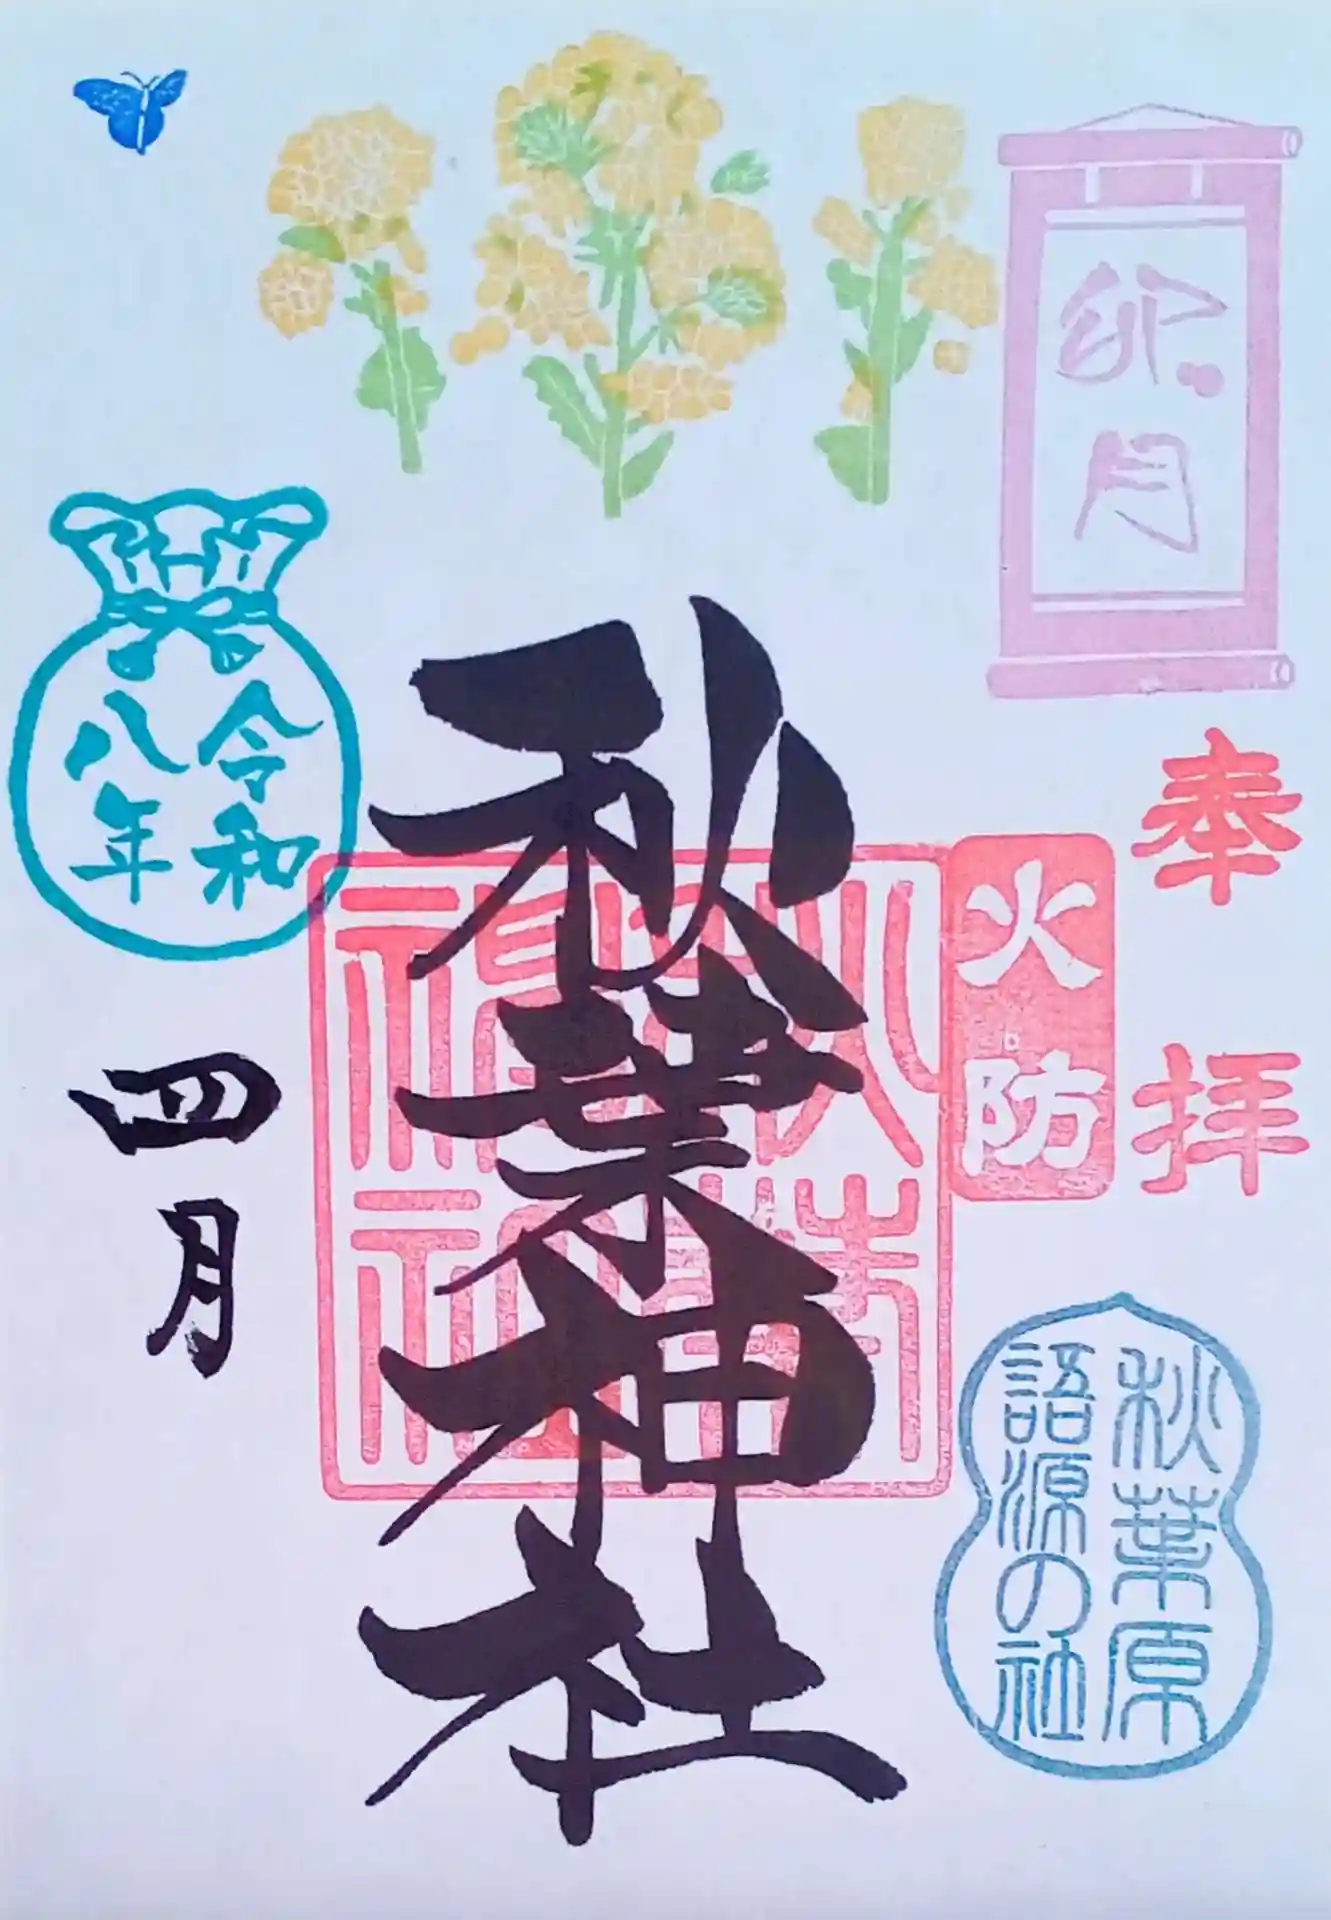 卯月
奉拝
火防
秋葉原
語源の社
秋葉神社
令和
八年
四月